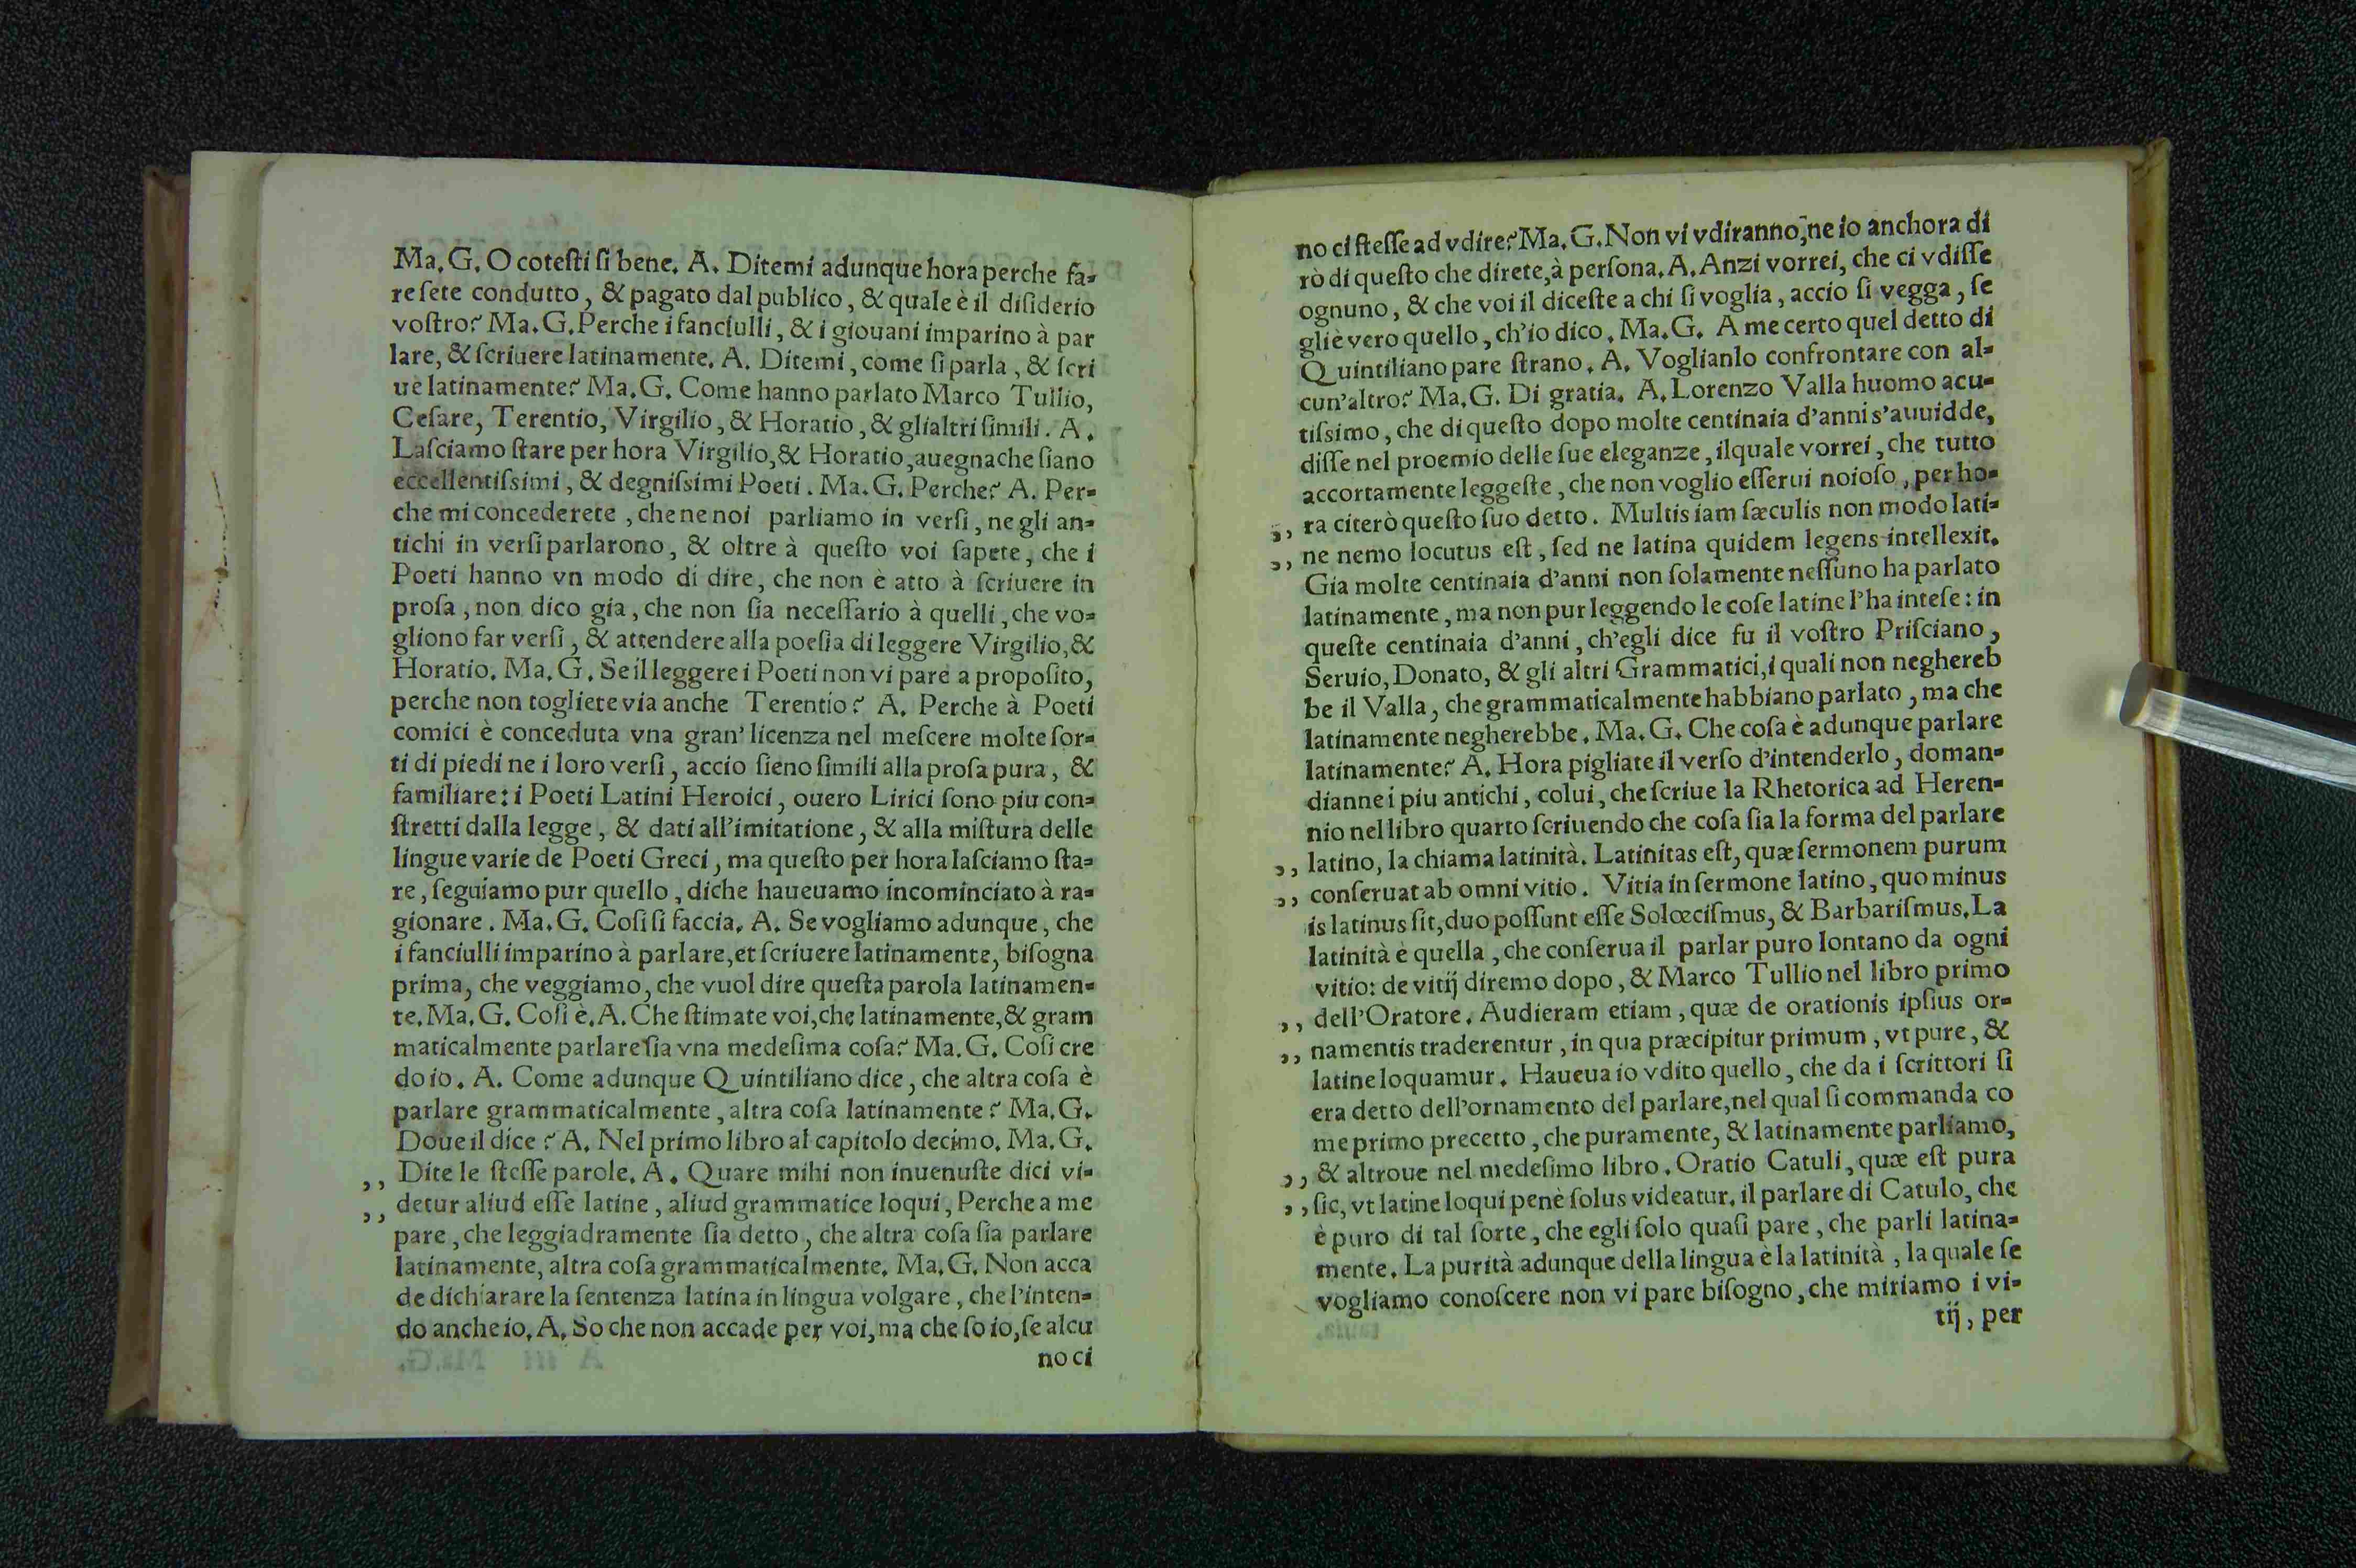 Ma.G. O cotesti si bene. A. Ditemi adunque hora perche fa-
re sete condutto, & pagato dal publico, & quale è il disiderio
vostro? Ma.G. Perche i fanciulli, & i giouani imparino à par
lare, & scriuere latinamente. A. Ditemi, come si parla, & scri
ue latinamente? Ma.G. Come hanno parlato Marco Tullio,
Cesare, Terentio, Virgilio, & Horatio, & glialtri simili. A.
Lasciamo stare per hora Virgilio, & Horatio, auegnache siano
eccellentissimi, & degnissimi Poeti. Ma.G. Perche? A. Per-
che mi concederete, che ne noi parliamo in versi, ne gli an-
tichi in versi parlarono, & oltre à questo voi sapete, che i
Poeti hanno vn modo di dire, che non è atto à scriuere in
prosa, non dico gia, che non sia necessario à quelli, che vo-
gliono far versi, & attendere alla poesia di leggere Virgilio, &
Horatio. Ma.G. Se il leggere i Poeti non vi pare a proposito,
perche non togliete via anche Terentio? A. Perche à Poeti
comici è conceduta vna gran' licenza nel mescere molte sor-
ti di piedi ne i loro versi, accio sieno simili alla prosa pura, &
familiare: i Poeti Latini Heroici, ouero Lirici sono piu con-
stretti dalla legge, & dati all'imitatione, & alla mistura delle
lingue varie de Poeti Greci, ma questo per hora lasciamo sta-
re, seguiamo pur quello, di che haueuamo incominciato à ra-
gionare. Ma.G. Cosi si faccia. A. Se vogliamo adunque, che
i fanciulli imparino à parlare, et scriuere latinamente, bisogna
prima, che veggiamo, che vuol dire questa parola latinamen-
te. Ma.G. Cosi è. A. Che stimate voi, che latinamente, & gram
maticalmente parlare sia vna medesima cosa? Ma.G. Cosi cre
do io. A. Come adunque Quintiliano dice, che altra cosa è
parlare grammaticalmente, altra cosa latinamente? Ma.G.
Doue il dice? A. Nel primo libro al capitolo decimo. Ma.G.
,, Dite le stesse parole. A. Quare mihi non inuenuste dici vi-
,, detur aliud esse latine, aliud grammatice loqui, Perche a me
pare, che leggiadramente sia detto, che altra cosa sia parlare
latinamente, altra cosa grammaticalmente. Ma.G. Non acca
de dichiarare la sentenza latina in lingua volgare, che l'inten-
do anche io. A. So che non accade per voi, ma che so io, se alcu
no ci
no ci stesse ad vdire? Ma.G. Non vi vdiranno, ne io anchora di
rò di questo che direte, à persona. A. Anzi vorrei, che ci vdisse
ognuno, & che voi il diceste a chi si voglia, accio si vegga, se
gliè vero quello, ch'io dico. Ma.G. A me certo quel detto di
Quintiliano pare strano. A. Voglianlo confrontare con al-
cun'altro? Ma.G. Di gratia. A. Lorenzo Valla huomo acu-
tissimo, che di questo dopo molte centinaia d'anni s'auuidde,
disse nel proemio delle sue eleganze, ilquale vorrei, che tutto
accortamente leggeste, che non voglio esserui noioso, per ho-
,, ra citerò questo suo detto. Multis iam sæculis non modo lati-
,, ne nemo locutus est, sed ne latina quidem legens intellexit.
Gia molte centinaia d'anni non solamente nessuno ha parlato
latinamente, ma non pur leggendo le cose latine l'ha intese: in
queste centinaia d'anni, ch'egli dice fu il vostro Prisciano,
Seruio, Donato, & gli altri Grammatici, i quali non neghereb
be il Valla, che grammaticalmente habbiano parlato, ma che
latinamente negherebbe. Ma.G. Che cosa è adunque parlare
latinamente? A. Hora pigliate il verso d'intenderlo, doman-
dianne i piu antichi, colui, che scriue la Rhetorica ad Heren-
nio nel libro quarto scriuendo che cosa sia la forma del parlare
,, latino, la chiama latinità. Latinitas est, quæ sermonem purum
,, conseruat ab omni vitio. Vitia in sermone latino, quo minus
is latinus sit, duo possunt esse Solœcismus, & Barbarismus. La
latinità è quella, che conserua il parlar puro lontano da ogni
vitio: de vitij diremo dopo, & Marco Tullio nel libro primo
,, dell'Oratore. Audieram etiam, quæ de orationis ipsius or-
,, namentis traderentur, in qua præcipitur primum, vt pure, &
latine loquamur. Haueua io vdito quello, che da i scrittori si
era detto dell'ornamento del parlare, nel qual si commanda co
me primo precetto, che puramente, & latinamente parliamo,
,, & altroue nel medesimo libro. Oratio Catuli, quæ est pura
,, sic, vt latine loqui penè solus videatur. il parlare di Catulo, che
è puro di tal sorte, che egli solo quasi pare, che parli latina-
mente. La purità adunque della lingua è la latinità, la quale se
vogliamo conoscere non vi pare bisogno, che miriamo i vi-
tij, per